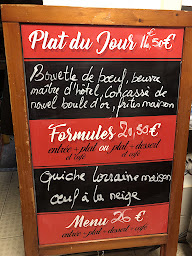 Plat du Jour 14,50€
Bavette de bœuf, beurre
maître d'hôtel, concassé de
navet boule d'or, frites maison
Formules 20,50€
entrée - plat ou plat - dessert
et café et café
Quiche lorraine maison
œuf à la neige
Menu 26 €
entrée - plat - dessert - café